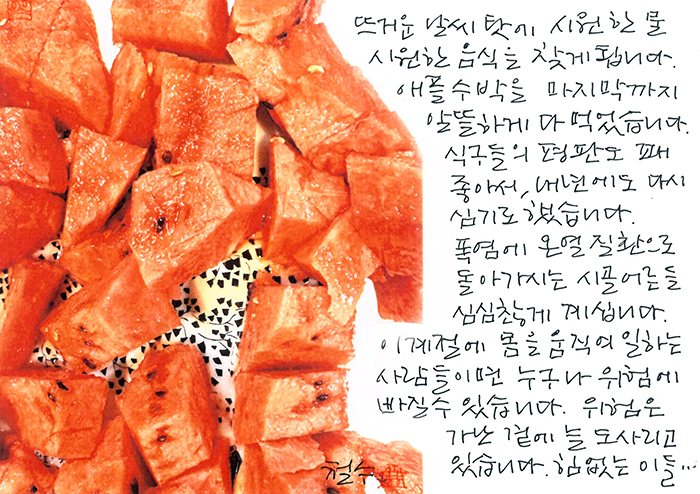 뜨거운 날씨 탓에 시원한 물
시원한 음식을 찾게 됩니다.
애플수박을 마지막까지
알뜰하게 다 먹었습니다.
식구들의 평판도 꽤
좋아서, 내년에도 다시
심기로 했습니다.
폭염에 온열질환으로
돌아가시는 시골어른들
심심찮게 계십니다.
이계절에 몸을 움직여 일하는
사람들이면 누구나 위험에
빠질수 있습니다. 위험은
가난 곁에 늘 도사리고
있습니다. 힘없는 이들…
철수